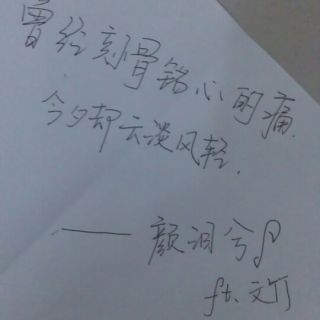 曾经刻骨铭心的痛.
今夕却云淡风轻.
—— 颜泪兮
ft. 文